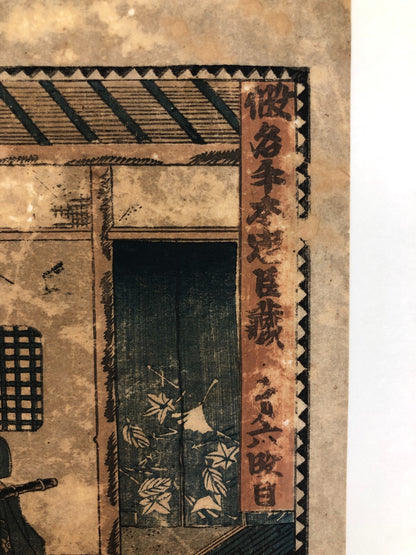 假名手本忠臣藏 六段目